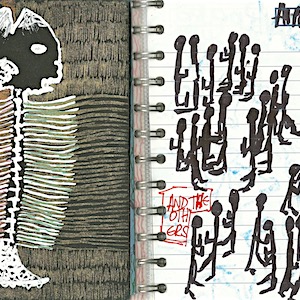 AND THE
OTH
ERS